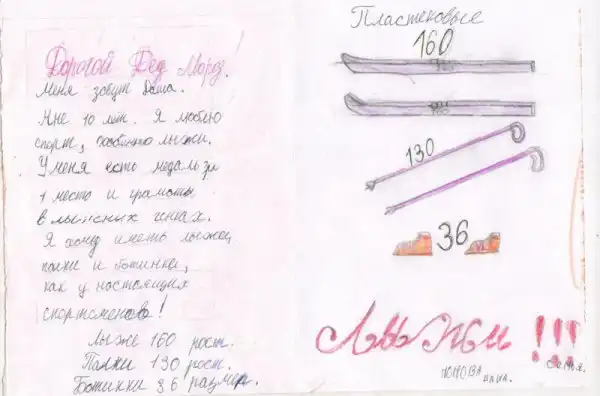 Дорогой Дед Мороз!
Меня зовут Даша.
Мне 10 лет. Я люблю
спорт, особенно лыжи.
У меня есть медаль за
1 место и грамоты
в лыжных гонках.
Я хочу иметь лыжи,
палки и ботинки,
как у настоящих
спортсменов!
Лыжи 160 рост.
Палки 130 рост.
Ботинки 36 размер.
Пластиковые
160
130
36
Лыжи!!!